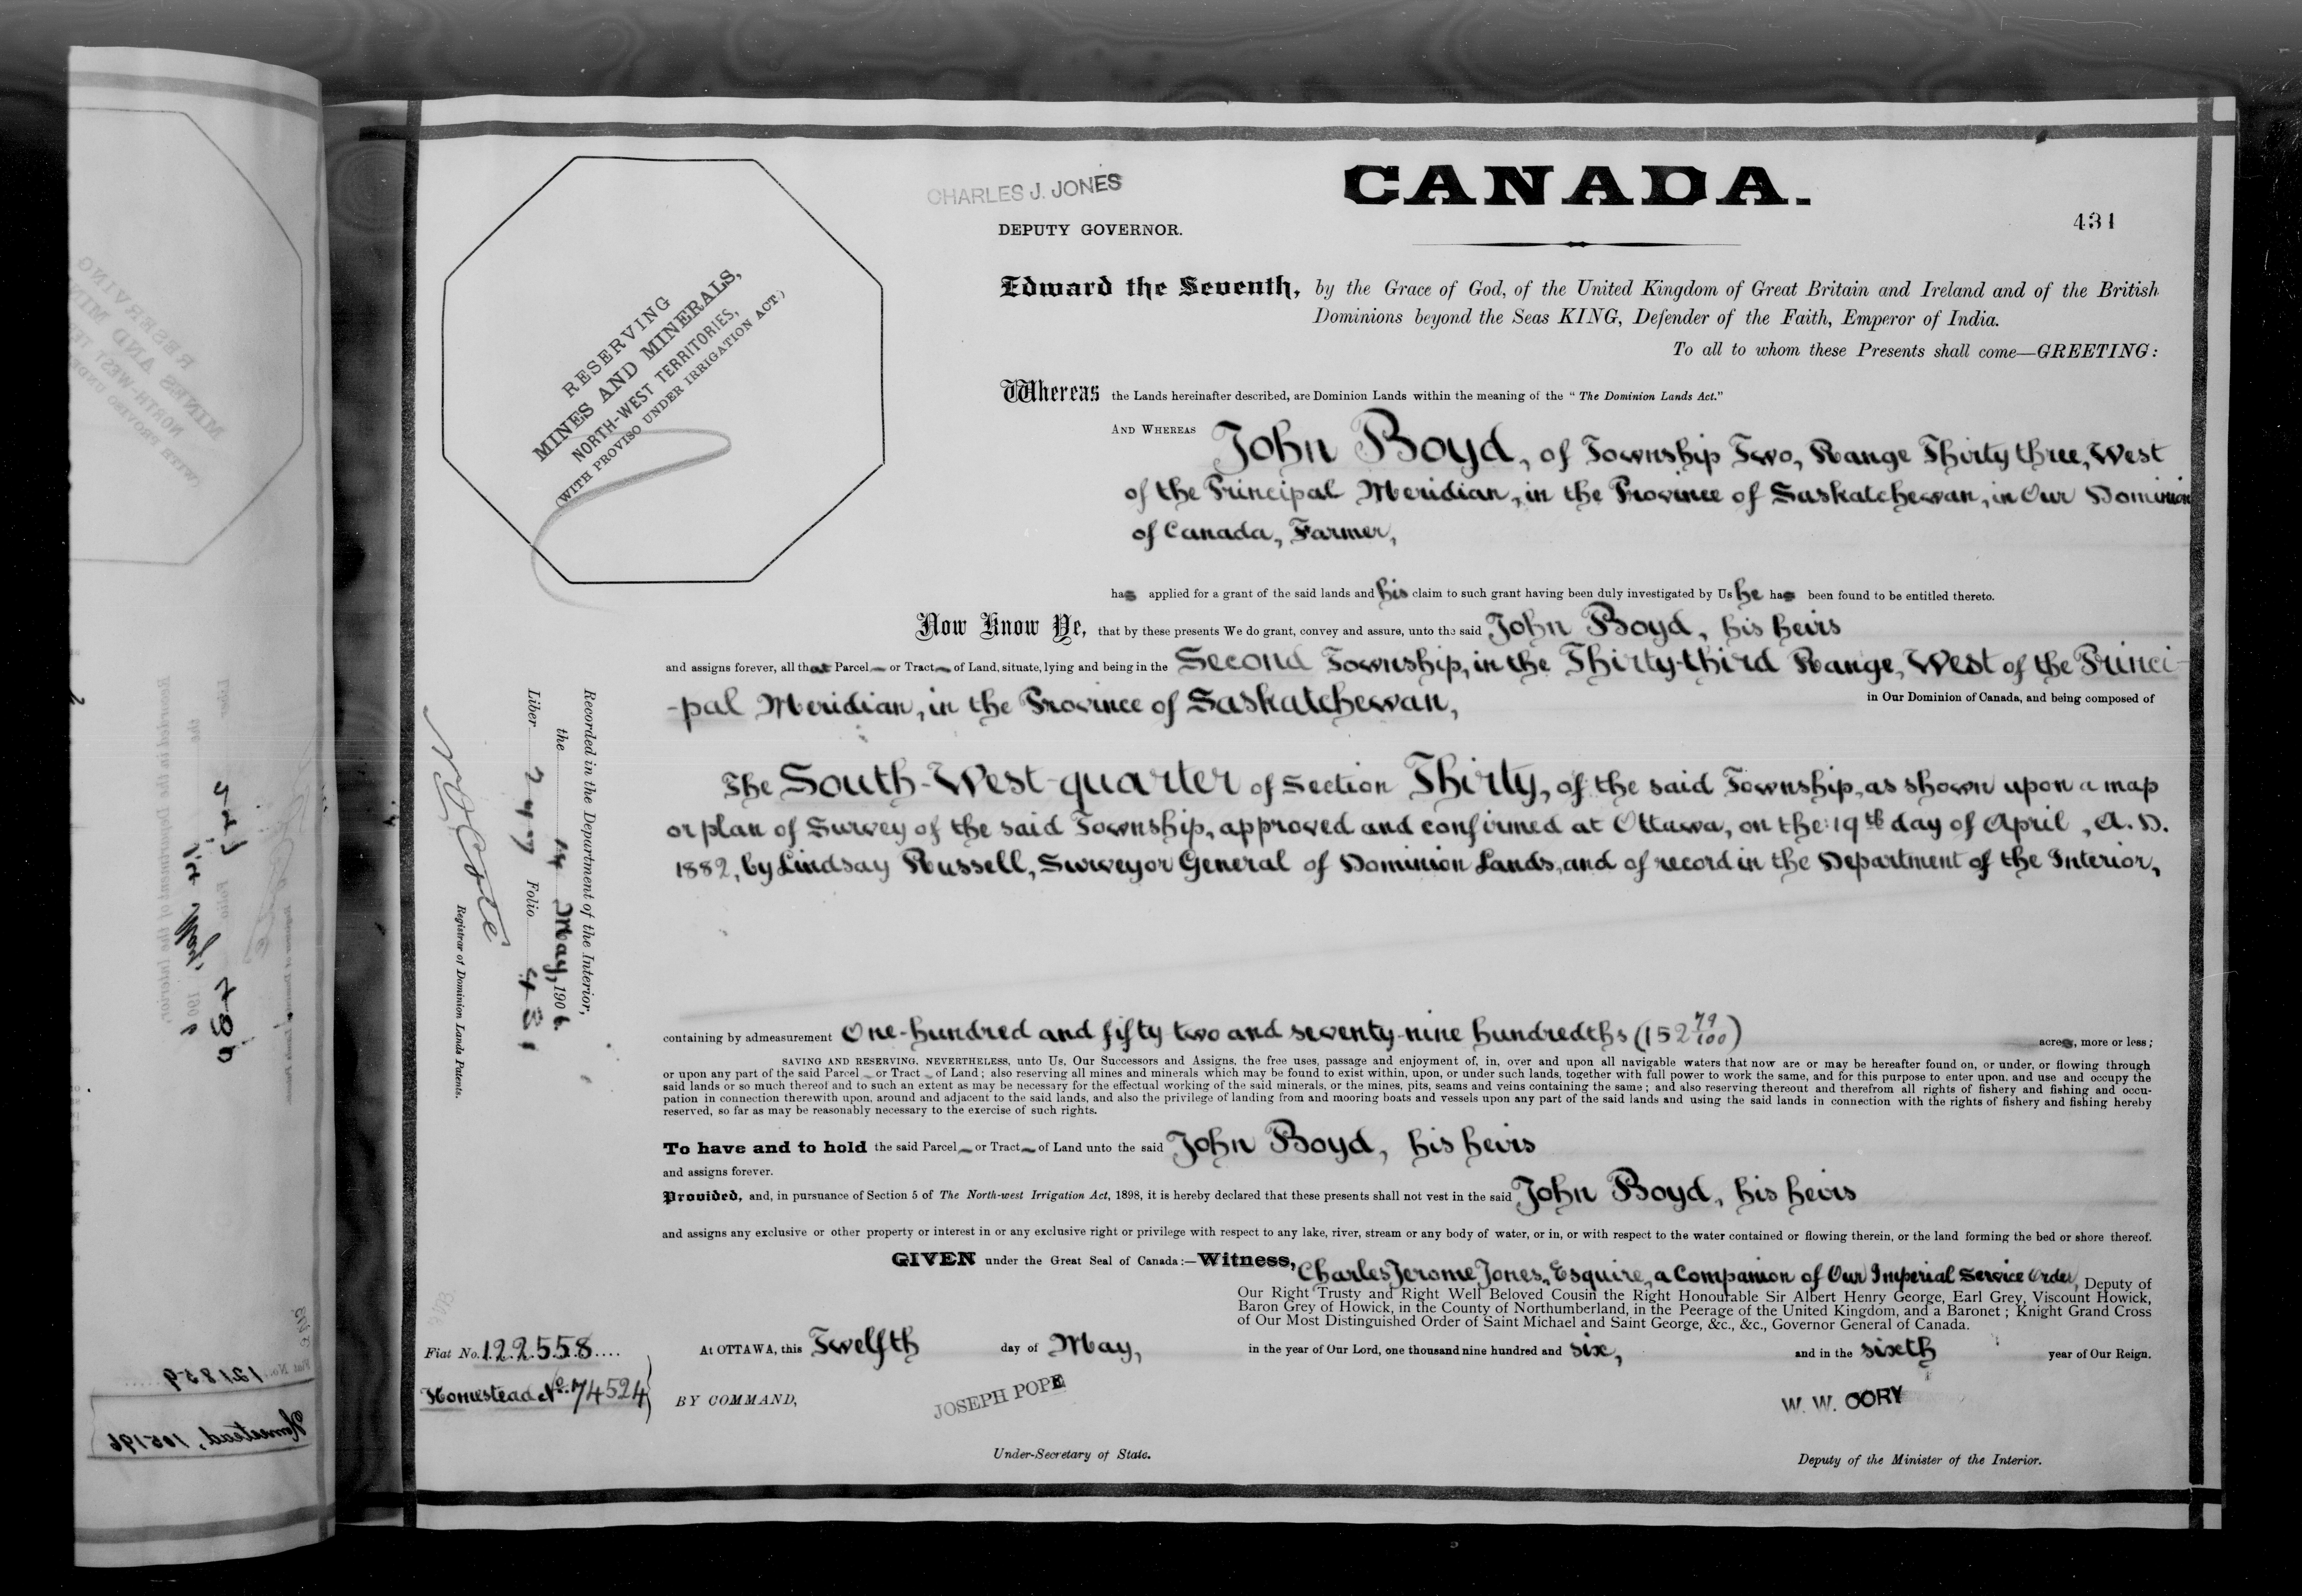 CHARLES J. JONES
CANADA.
DEPUTY GOVERNOR.
431
RESERVING
MINES AND MINERALS,
NORTH-WEST TERRITORIES,
(WITH PROVISO UNDER IRRIGATION ACT.)
Edward the Seventh, by the Grace of God, of the United Kingdom of Great Britain and Ireland and of the British
Dominions beyond the Seas KING, Defender of the Faith, Emperor of India.
To all to whom these Presents shall come—GREETING:
Whereas the Lands hereinafter described, are Dominion Lands within the meaning of the "The Dominion Lands Act."
AND WHEREAS John Boyd, of Township Two, Range Thirty three, West
of the Principal Meridian, in the Province of Saskatchewan, in Our Dominion
of Canada, Farmer,
has applied for a grant of the said lands and his claim to such grant having been duly investigated by Us he has been found to be entitled thereto.
Now Know Ye, that by these presents We do grant, convey and assure, unto the said John Boyd, his heirs
and assigns forever, all that Parcel or Tract of Land, situate, lying and being in the Second Township, in the Thirty-third Range, West of the Princi-
-pal Meridian, in the Province of Saskatchewan, in Our Dominion of Canada, and being composed of
The South-West-quarter of Section Thirty, of the said Township, as shown upon a map
or plan of Survey of the said Township, approved and confirmed at Ottawa, on the 19th day of April, A. D.
1882, by Lindsay Russell, Surveyor General of Dominion Lands, and of record in the Department of the Interior,
containing by admeasurement One-hundred and fifty two and seventy-nine hundredths (152 79/100) acres, more or less;
SAVING AND RESERVING, NEVERTHELESS, unto Us, Our Successors and Assigns, the free uses, passage and enjoyment of, in, over and upon all navigable waters that now are or may be hereafter found on, or under, or flowing through
or upon any part of the said Parcel or Tract of Land; also reserving all mines and minerals which may be found to exist within, upon, or under such lands, together with full power to work the same, and for this purpose to enter upon, and use and occupy the
said lands or so much thereof and to such an extent as may be necessary for the effectual working of the said minerals, or the mines, pits, seams and veins containing the same; and also reserving thereout and therefrom all rights of fishery and fishing and occu-
pation in connection therewith upon, around and adjacent to the said lands, and also the privilege of landing from and mooring boats and vessels upon any part of the said lands and using the said lands in connection with the rights of fishery and fishing hereby
reserved, so far as may be reasonably necessary to the exercise of such rights.
To have and to hold the said Parcel or Tract of Land unto the said John Boyd, his heirs
and assigns forever.
Provided, and, in pursuance of Section 5 of The North-west Irrigation Act, 1898, it is hereby declared that these presents shall not vest in the said John Boyd, his heirs
and assigns any exclusive or other property or interest in or any exclusive right or privilege with respect to any lake, river, stream or any body of water, or in, or with respect to the water contained or flowing therein, or the land forming the bed or shore thereof.
GIVEN under the Great Seal of Canada:—Witness, Charles Jerome Jones, Esquire, a Companion of Our Imperial Service Order, Deputy of
Our Right Trusty and Right Well Beloved Cousin the Right Honourable Sir Albert Henry George, Earl Grey, Viscount Howick,
Baron Grey of Howick, in the County of Northumberland, in the Peerage of the United Kingdom, and a Baronet; Knight Grand Cross
of Our Most Distinguished Order of Saint Michael and Saint George, &c., &c., Governor General of Canada.
At OTTAWA, this Twelfth day of May, in the year of Our Lord, one thousand nine hundred and six, and in the sixth year of Our Reign.
BY COMMAND,
JOSEPH POPE
Under-Secretary of State.
W. W. CORY
Deputy of the Minister of the Interior.
Fiat No. 122558....
Homestead No. 74524
Recorded in the Department of the Interior,
the 14 May, 1906.
Liber 247 Folio 431
Registrar of Dominion Lands Patents.
Fiat No. 121859
Homestead, 105196